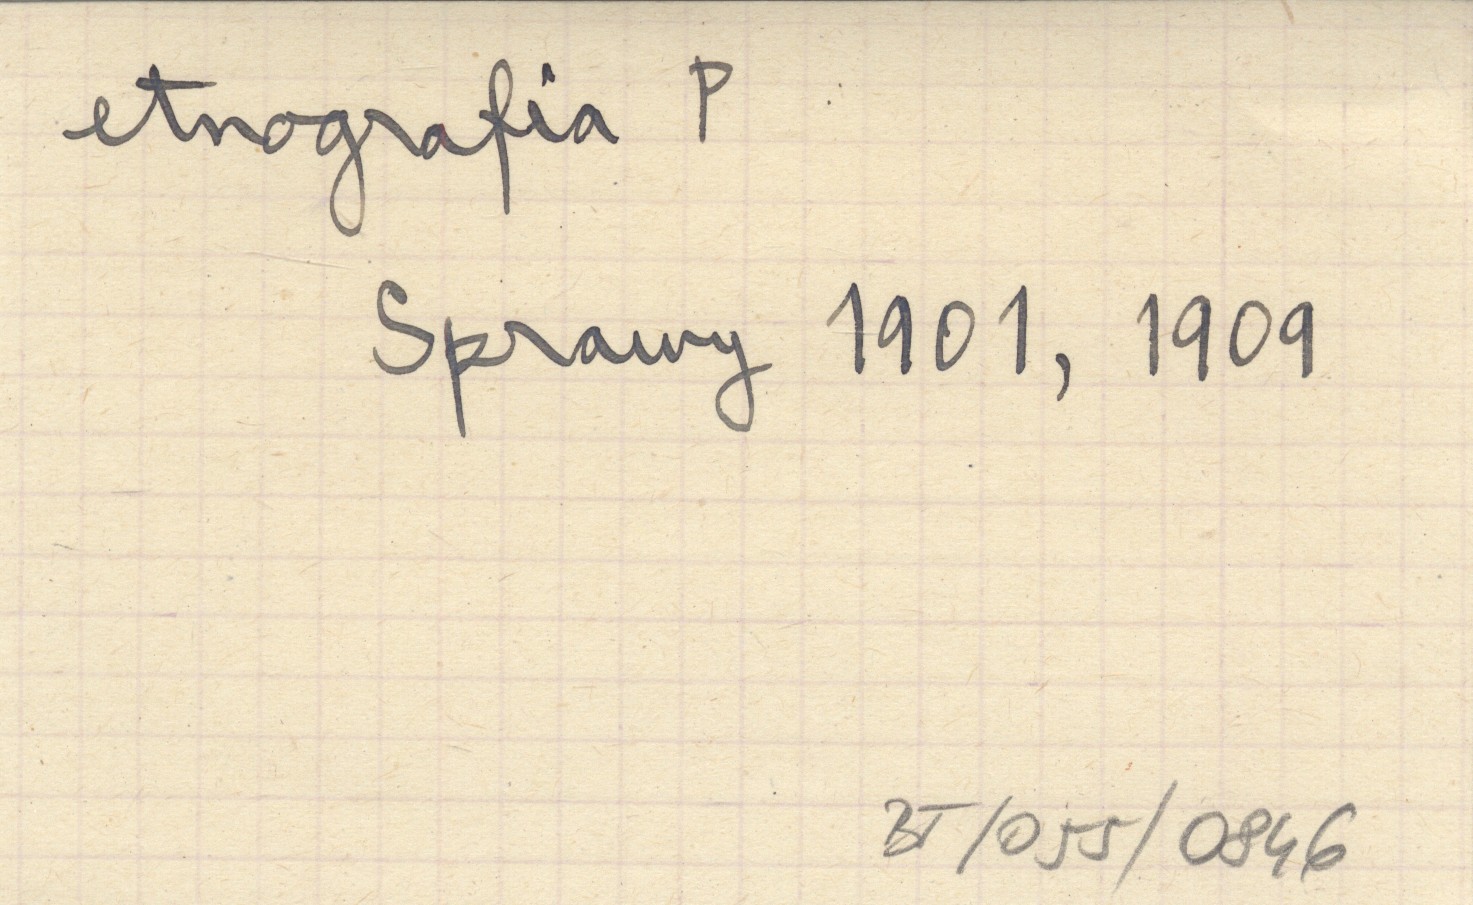 etnografia P
Sprawy 1901, 1909
BT/055/0846